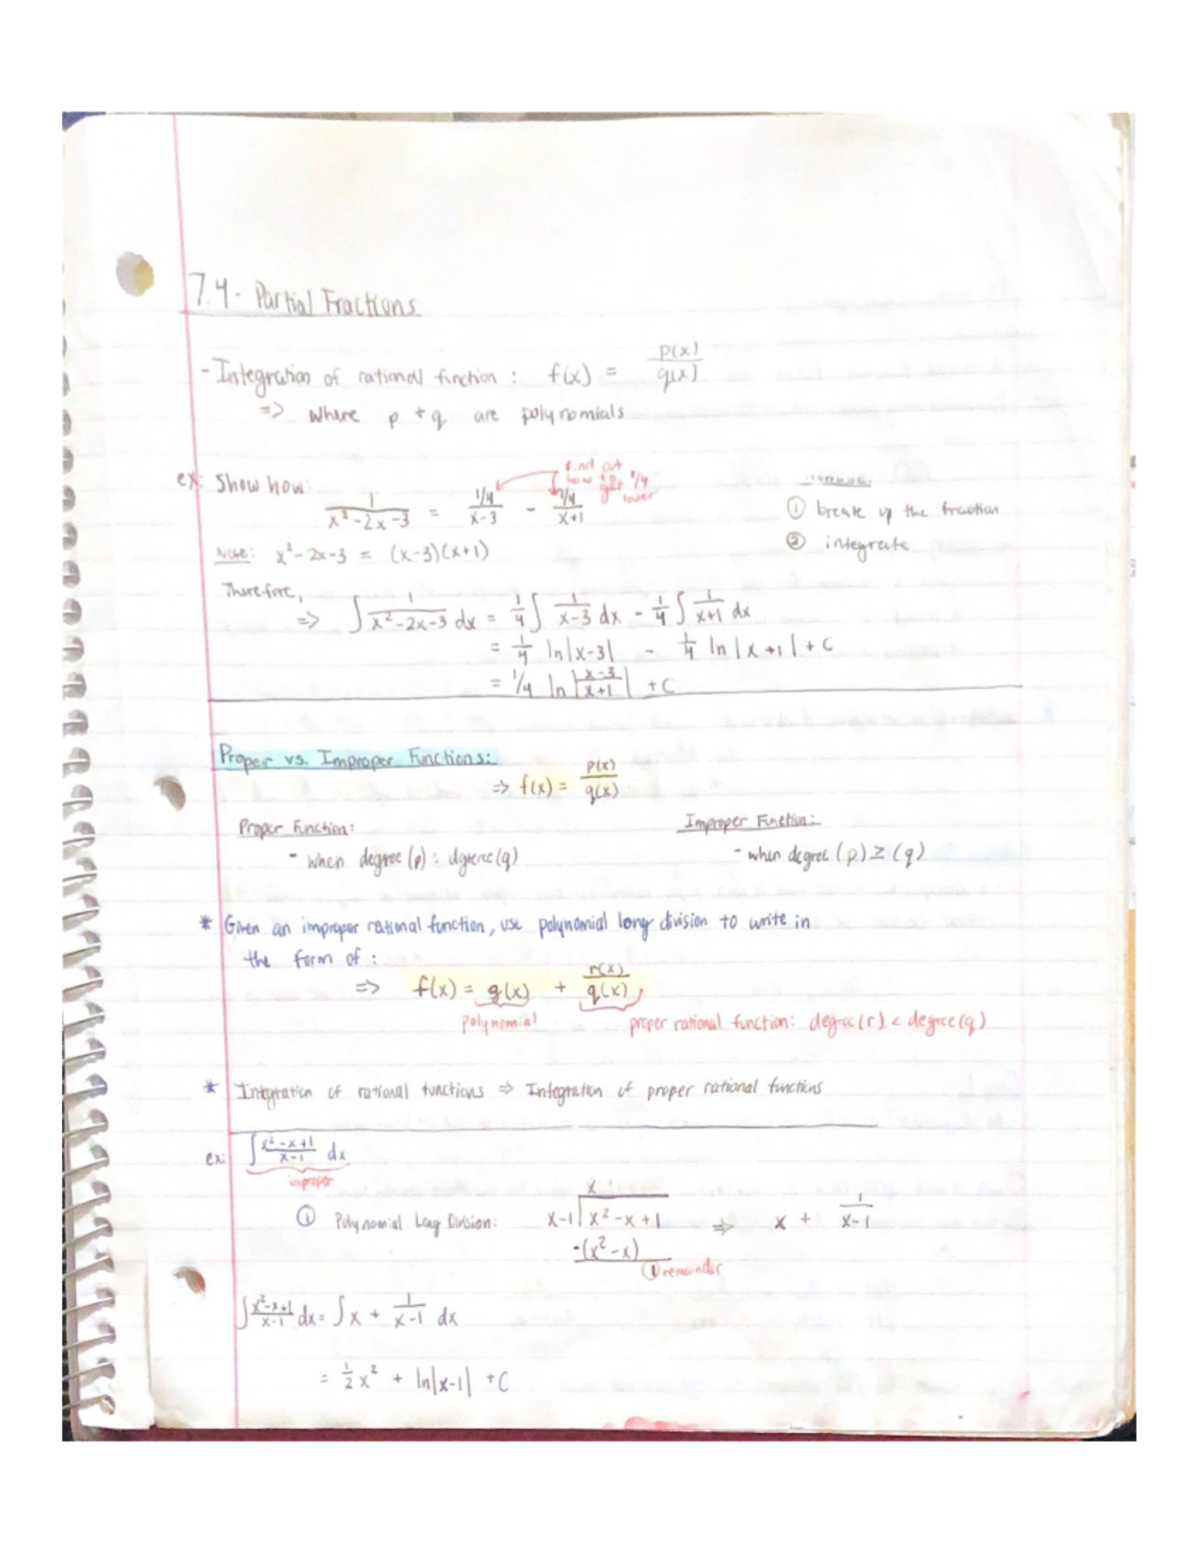 7.4 - Partial Fractions
- Integration of rational function : f(x) = p(x)/q(x)
=> where p + q are polynomials
find out how to get 1/4
ex: Show how:
1/(x²-2x-3) = (1/4)/(x-3) - (1/4)/(x+1)
① break up the fraction
② integrate
Note: x²-2x-3 = (x-3)(x+1)
Therefore,
=> ∫ 1/(x²-2x-3) dx = 1/4 ∫ 1/(x-3) dx - 1/4 ∫ 1/(x+1) dx
= 1/4 ln|x-3| - 1/4 ln|x+1| + C
= 1/4 ln|(x-3)/(x+1)| + C
Proper vs. Improper Functions:
=> f(x) = p(x)/q(x)
Proper Function:
- when degree (p) : dgreree (q)
Improper Function:
- when degree (p) ≥ (q)
* Given an improper rational function, use polynomial long division to write in
the form of :
=> f(x) = g(x) + r(x)/q(x)
polynomial
proper rational function: degree (r) < degree (q)
* Integration of rational functions => Integration of proper rational functions
ex: ∫ (x²-x+1)/(x-1) dx
improper
① Polynomial Long Division:
x
x-1 | x²-x+1 => x + 1/(x-1)
-(x²-x)
1 remainder
∫ (x²-x+1)/(x-1) dx = ∫ x + 1/(x-1) dx
= 1/2 x² + ln|x-1| + C